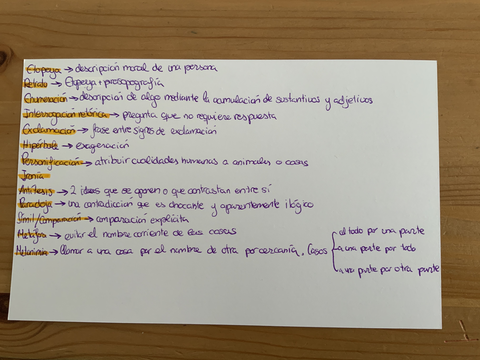 Etopeya → descripción moral de una persona
Retrato → Etopeya + prosopografía
Enumeración → descripción de algo mediante la acumulación de sustantivos y adjetivos
Interrogación retórica → pregunta que no requiere respuesta
Exclamación → frase entre signos de exclamación
Hipérbole → exageración
Personificación → atribuir cualidades humanas a animales o cosas
Ironía
Antítesis → 2 ideas que se oponen o que contrastan entre sí
Paradoja → una contradicción que es chocante y aparentemente ilógico
Símil/Comparación → comparación explícita
Metáfora → evitar el nombre corriente de las cosas
Metonimia → llamar a una cosa por el nombre de otra por cercanía. Casos
el todo por una parte
a una parte por todo
a una parte por otra parte